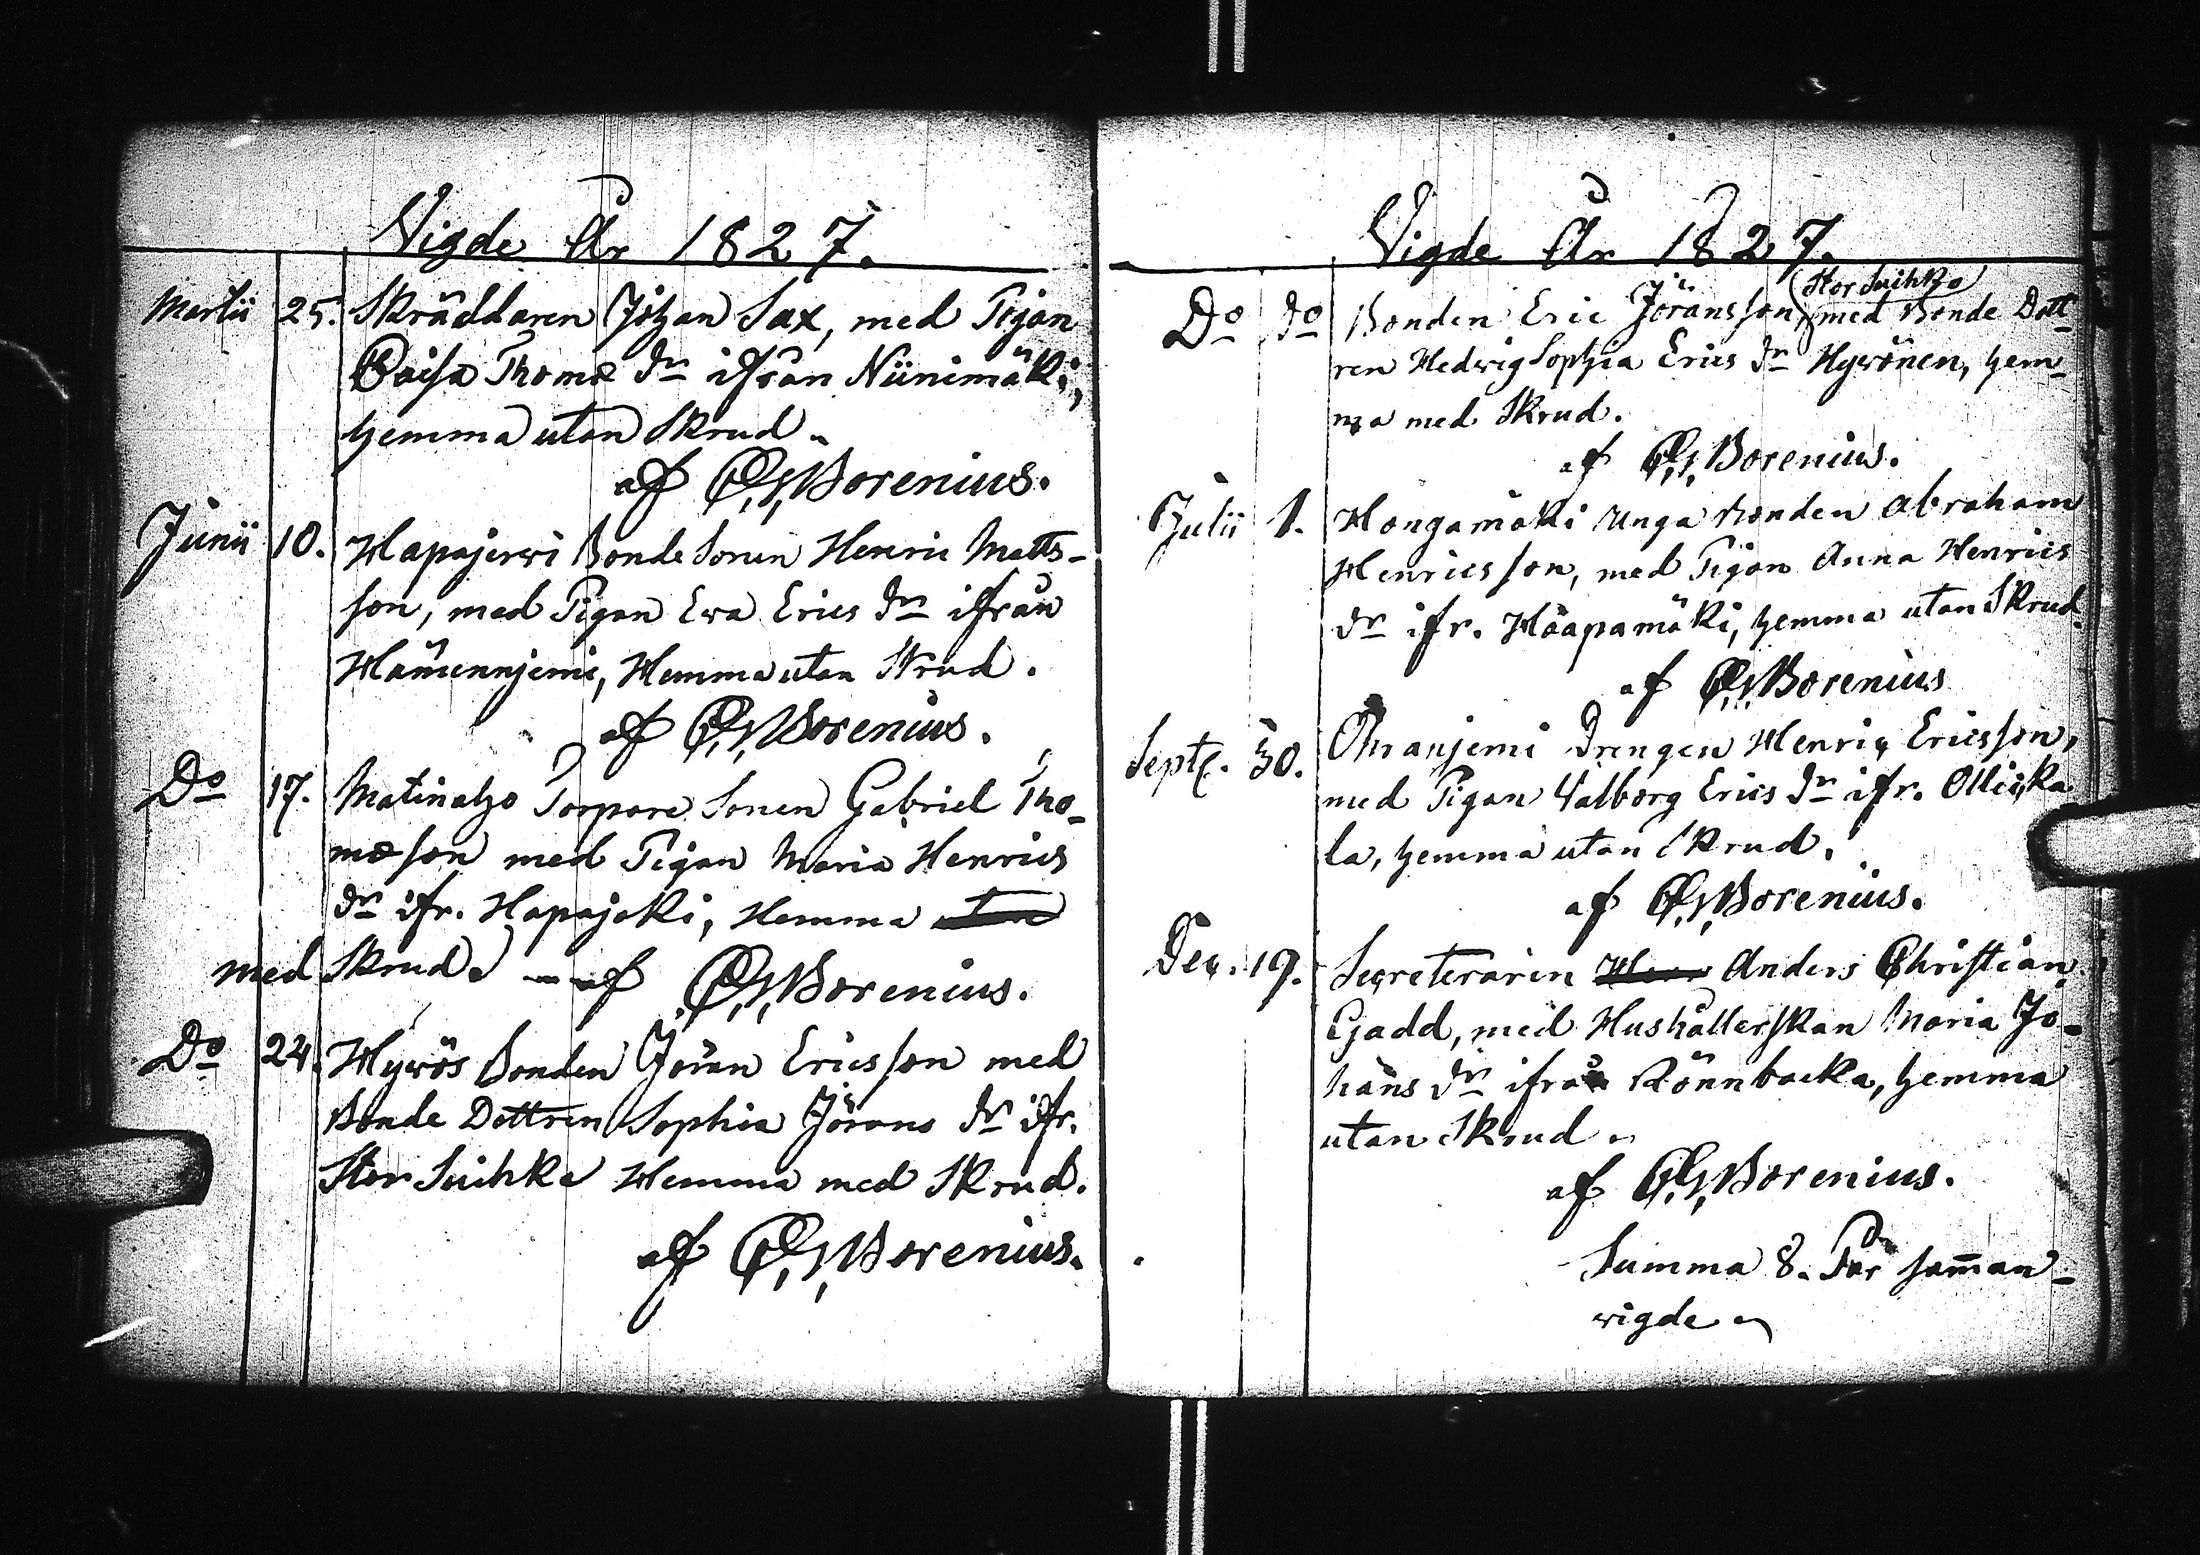 Vigde År 1827.
Martii 25. Skräddaren Johan Sax, med Pigan
Caisa Thomæ dr ifrån Niinimäki,
hemma utan Skrud.
af C. G. Borenius.
Junii 10. Hapajerwi Bonde Sonen Henric Matts-
son, med Pigan Ewa Erics dr ifrån
Hämennjemi, Hemma utan Skrud.
af C. G. Borenius.
Do 17. Matinaho Torpare Sonen Gabriel Tho-
mæson med Pigan Maria Henrics
dr ifr. Hapajoki, Hemma utan
med Skrud. af C. G. Borenius.
Do 24. Hywös Bonden Jöran Ericsson med
Bonde Dottren Sophia Jörans dr ifr.
Stor Suihko Hemma med Skrud.
af C. G. Borenius.
Vigde År 1827.
Stor Suihko
Do Do Bonden Eric Jöransson, med Bonde Dott-
ren Hedwig Sophia Erics dr Hywönen, hem-
ma med Skrud.
af C. G. Borenius.
Julii 1. Hongamäki Unga Bonden Abraham
Henricsson, med Pigan Anna Henrics
dr ifr. Haapamäki, hemma utan Skrud.
af C. G. Borenius
Septr. 30. Ohranjemi Drengen Henric Ericsson,
med Pigan Valborg Erics dr ifr. Ollicka
la, hemma utan Skrud.
af C. G. Borenius.
Dec. 19. Secreteraren Herr Anders Christian
Gadd, med Hushållerskan Maria Jo-
hans dr ifrån Rönnbacka, hemma
utan Skrud.
af C. G. Borenius.
Summa 8. Par samman-
wigde